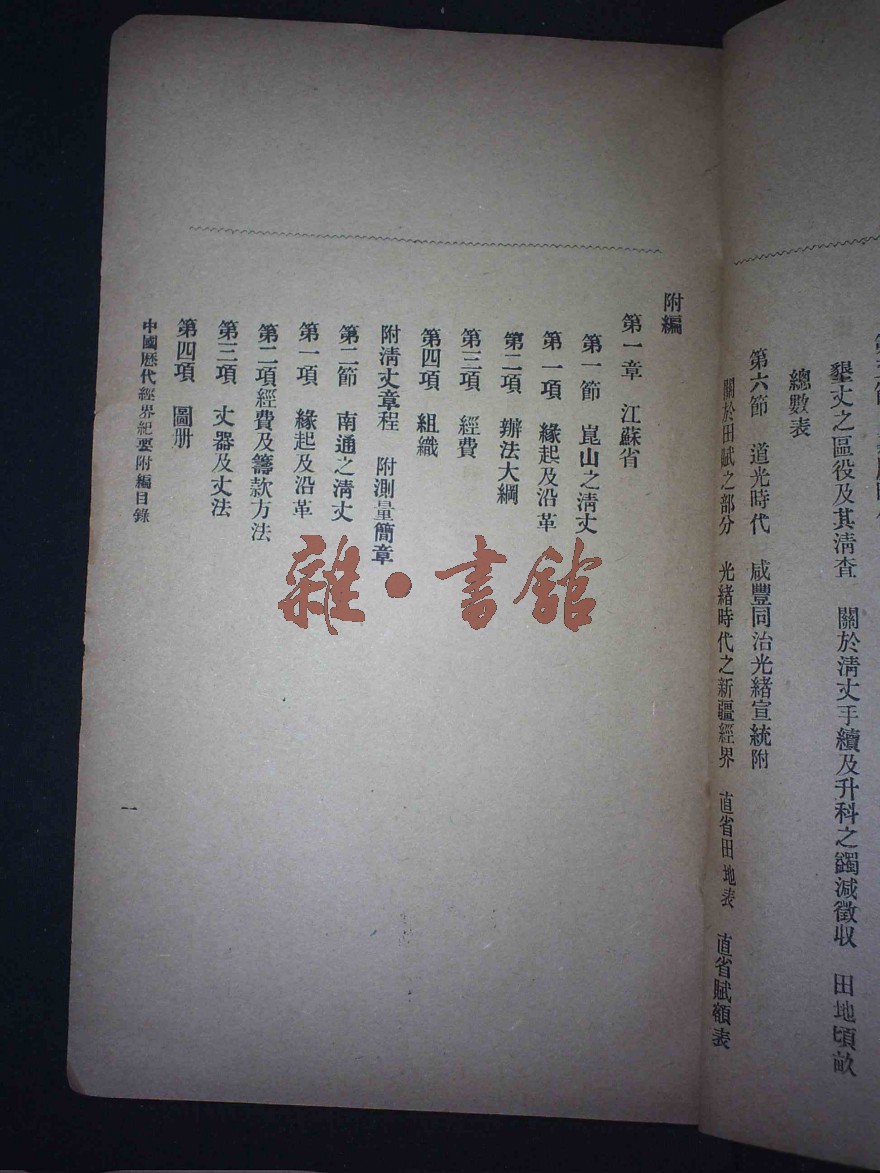 墾丈之區役及其淸查　關於淸丈手續及升科之蠲減徵收　田地頃畝
總數表
第六節　道光時代　咸豐同治光緖宣統附
關於田賦之部分　光緖時代之新疆經界　直省田地表　直省賦額表
附編
第一章　江蘇省
第一節　崑山之淸丈
第一項　緣起及沿革
第二項　辦法大綱
第三項　經費
第四項　組織
附淸丈章程　附測量簡章
第二節　南通之淸丈
第一項　緣起及沿革
第二項經費及籌款方法
第三項　丈器及丈法
第四項　圖册
中國歷代經界紀要附編目錄
一
雜·書館